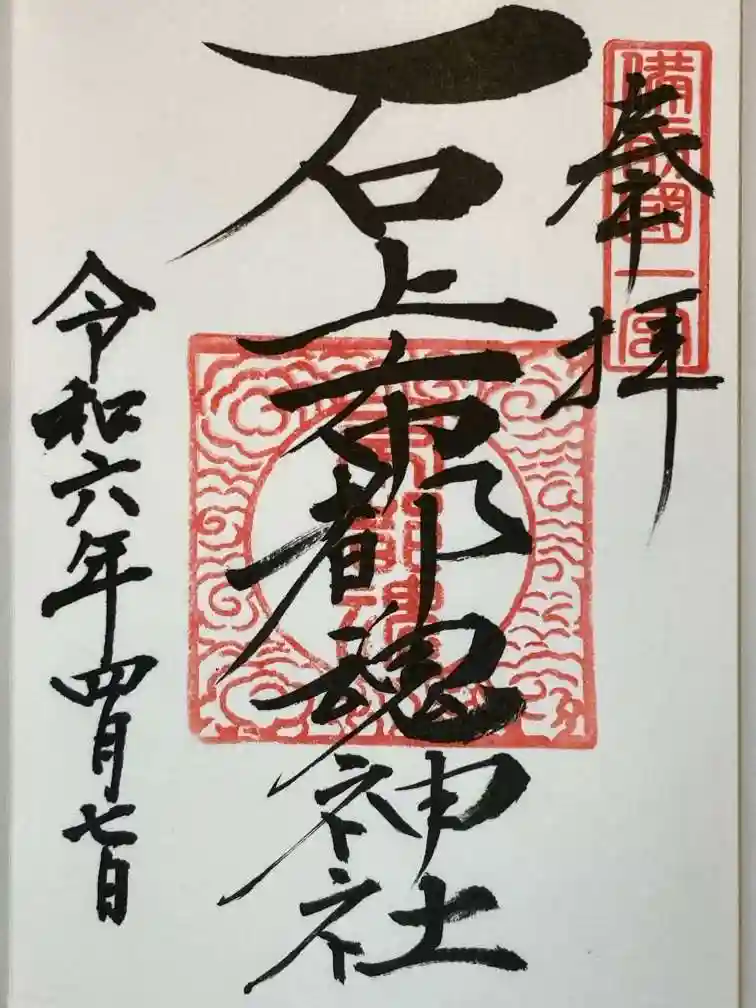 備前國一宮
奉拝
石上布都魂神社
布都魂
令和六年四月七日